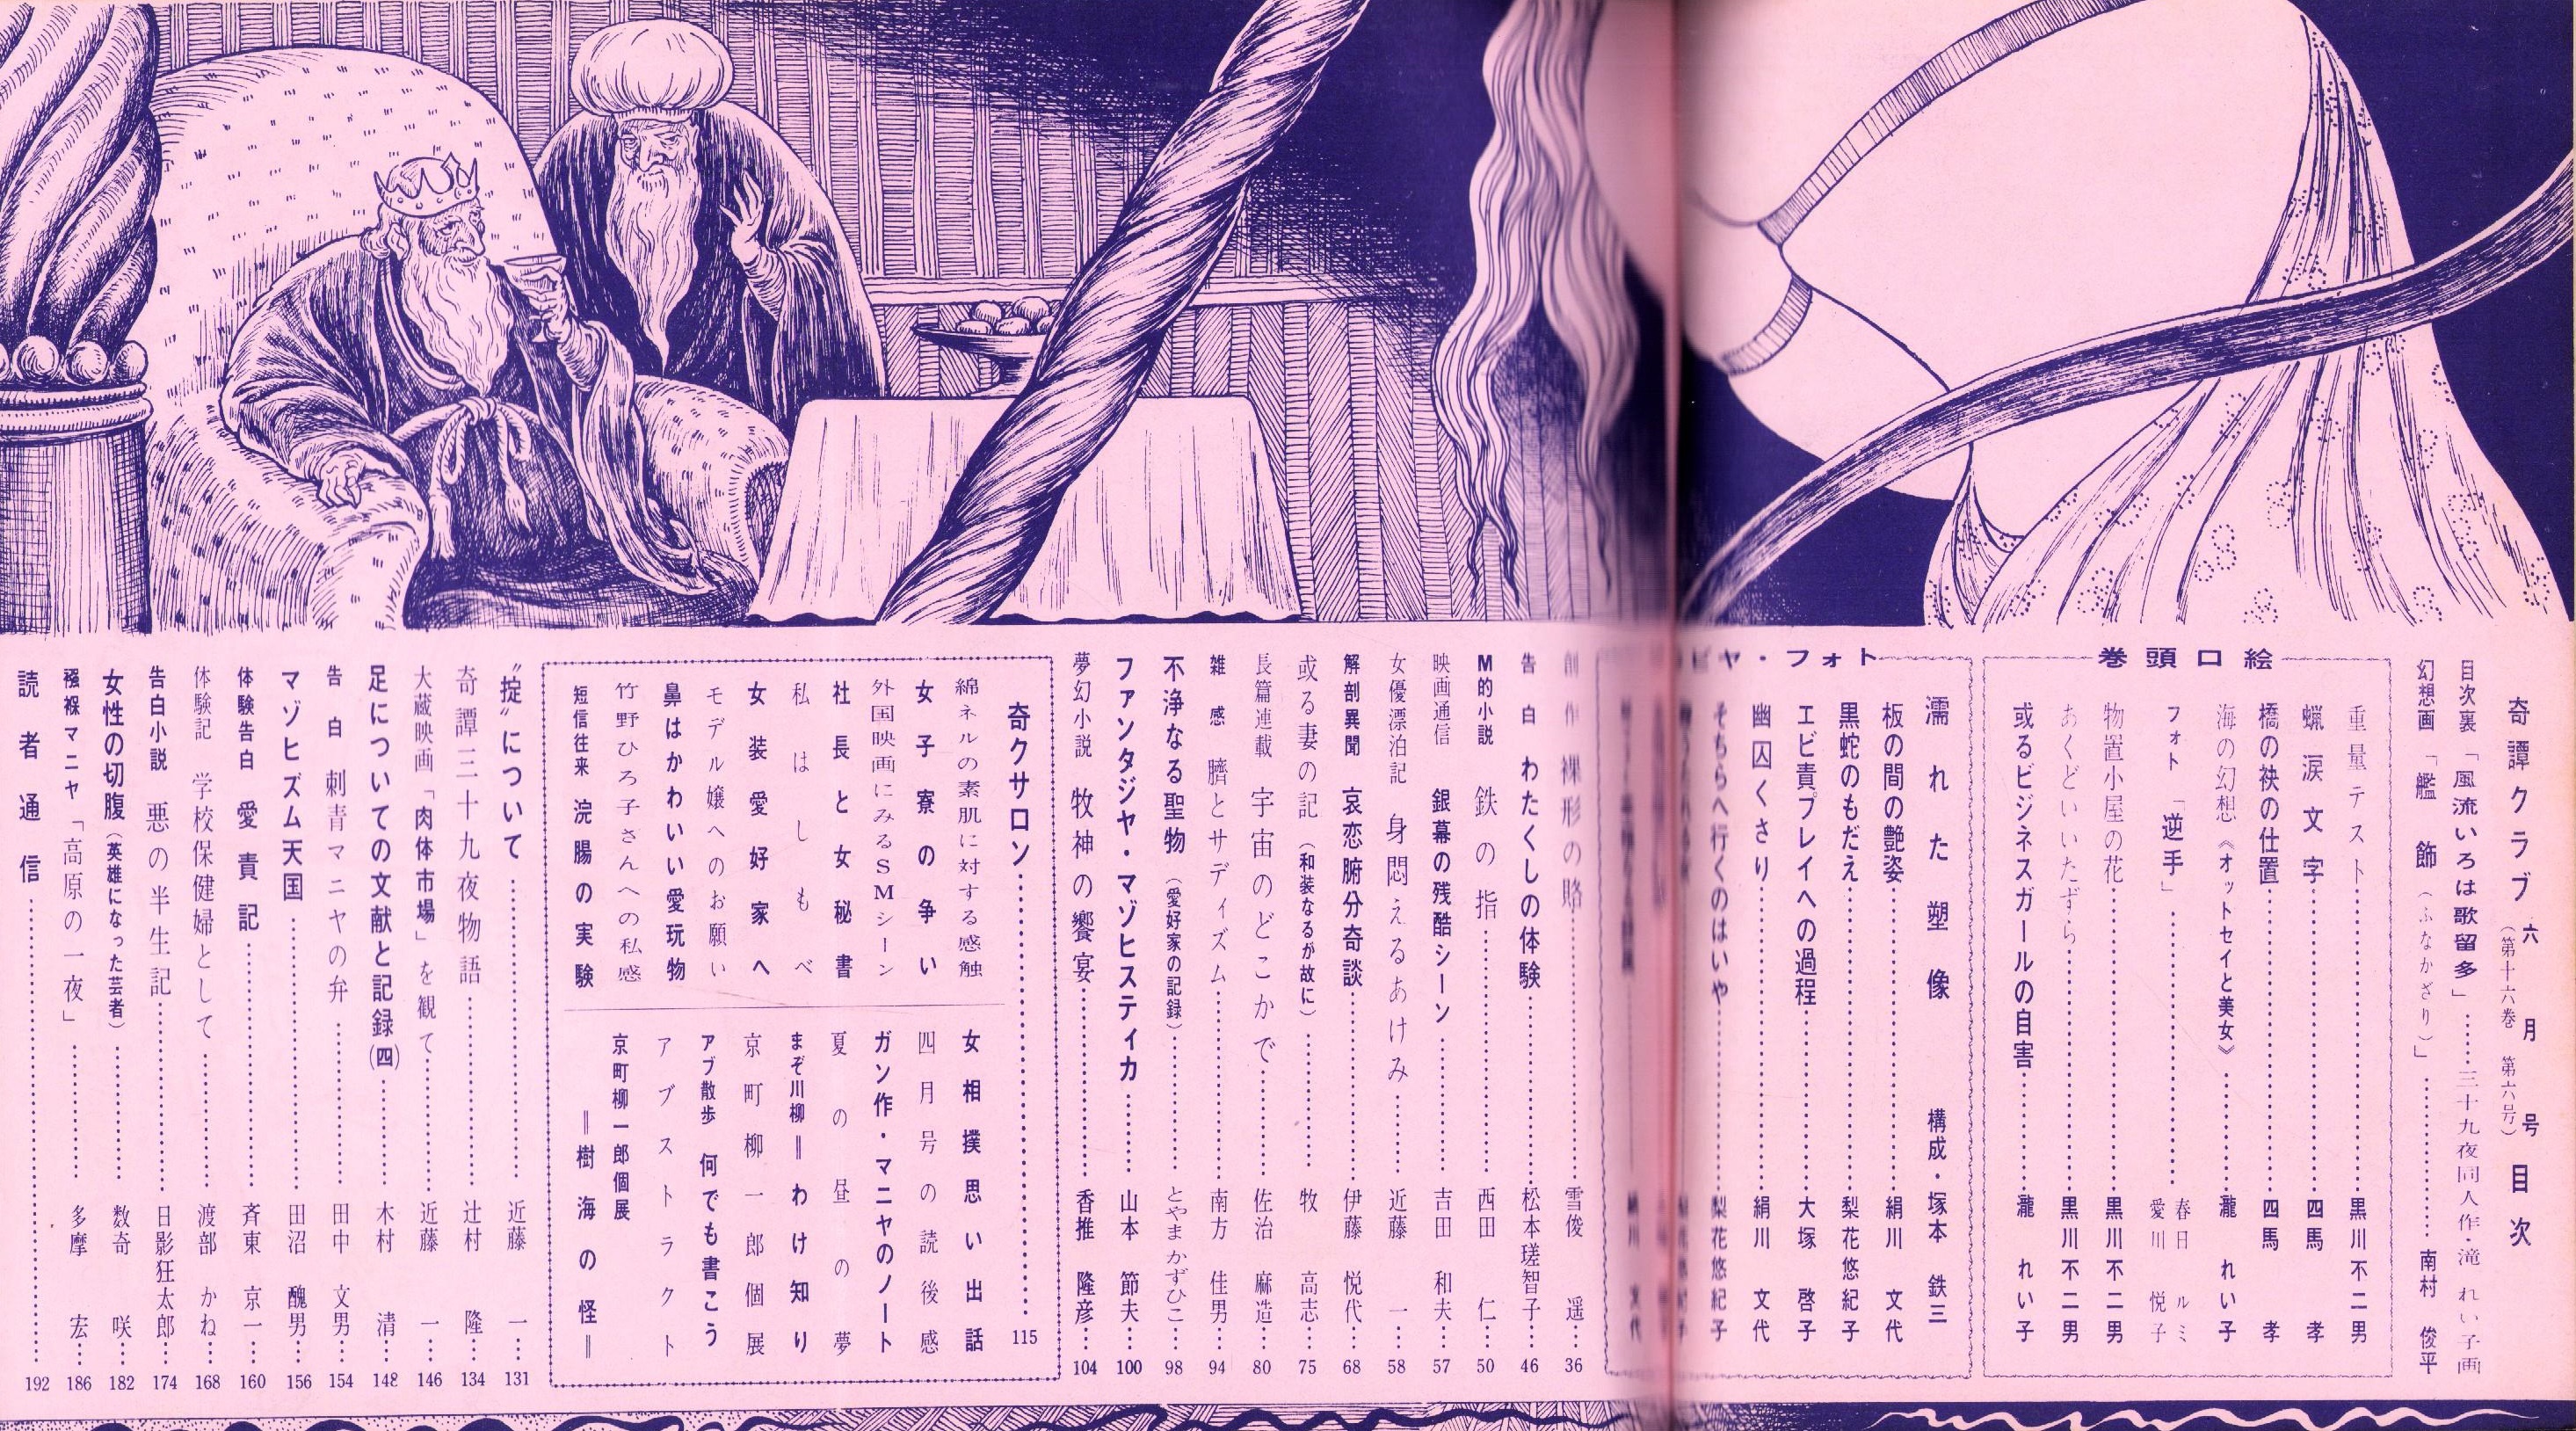 奇譚クラブ 六月号 目次
(第十六巻 第六号)
目次裏 「風流いろは歌留多」……三十九夜同人作・滝 れい子画
幻想画 「艦飾(ふなかざり)」……南村 俊平
巻頭口絵
重量テスト……黒川不二男
蝋涙文字……四馬 孝
橋の袂の仕置……四馬 孝
海の幻想《オットセイと美女》……瀧 れい子
フォト 「逆手」……春日 ルミ 愛川 悦子
物置小屋の花……黒川不二男
あくどいいたずら……黒川不二男
或るビジネスガールの自害……瀧 れい子
ヤ・フォト
濡れた塑像 構成・塚本 鉄三
板の間の艶姿……絹川 文代
黒蛇のもだえ……梨花悠紀子
エビ責プレイへの過程……大塚 啓子
幽囚くさり……絹川 文代
そちらへ行くのはいや……梨花悠紀子
創作 裸形の賂……雪俊 遥…36
告白 わたくしの体験……松本瑳智子…46
M的小説 鉄の指……西田 仁…50
映画通信 銀幕の残酷シーン……吉田 和夫…57
女優漂泊記 身悶えるあけみ……近藤 一…58
解剖異聞 哀恋腑分奇談……伊藤 悦代…68
或る妻の記(和装なるが故に)……牧 高志…75
長篇連載 宇宙のどこかで……佐治 麻造…80
雑感 臍とサディズム……南方 佳男…94
不浄なる聖物(愛好家の記録)……とやま かずひこ…98
ファンタジヤ・マゾヒスティカ……山本 節夫…100
夢幻小説 牧神の饗宴……香推 隆彦…104
奇クサロン……115
綿ネルの素肌に対する感触
女子寮の争い
外国映画にみるSMシーン
社長と女秘書
私はしもべ
女装愛好家へ
モデル嬢へのお願い
鼻はかわいい愛玩物
竹野ひろ子さんへの私感
短信往来 浣腸の実験
女相撲思い出話
四月号の読後感
ガン作・マニヤのノート
夏の昼の夢
まぞ川柳=わけ知り
京町柳一郎個展
アブ散歩 何でも書こう
アブストラクト
京町柳一郎個展
=樹海の怪=
〝掟〟について……近藤 一…131
奇譚三十九夜物語……辻村 隆…134
大蔵映画「肉体市場」を観て……近藤 一…146
足についての文献と記録(四)……木村 清…148
告白 刺青マニヤの弁……田中 文男…154
マゾヒズム天国……田沼 醜男…156
体験告白 愛責記……斉東 京一…160
体験記 学校保健婦として……渡部 かね…168
告白小説 悪の半生記……日影狂太郎…174
女性の切腹(英雄になった芸者)……数奇 咲…182
襁褓マニヤ「高原の一夜」……多摩 宏…186
読者通信……192